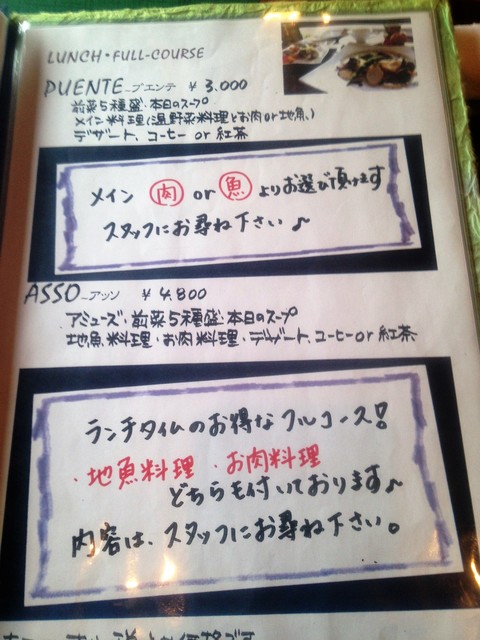 LUNCH・FULL-COURSE
PUENTE-プエンテ ¥3.000
前菜5種盛・本日のスープ
メイン料理(温野菜料理とお肉or地魚)
デザート、コーヒー or 紅茶
メイン 肉 or 魚 よりお選び頂けます
スタッフにお尋ね下さい♪
ASSO-アッソ ¥4.800
アミューズ・前菜5種盛・本日のスープ
地魚料理・お肉料理・デザート、コーヒーor紅茶
ランチタイムのお得なフルコース!
・地魚料理 ・お肉料理
どちらも付いております♪
内容は、スタッフにお尋ね下さい。